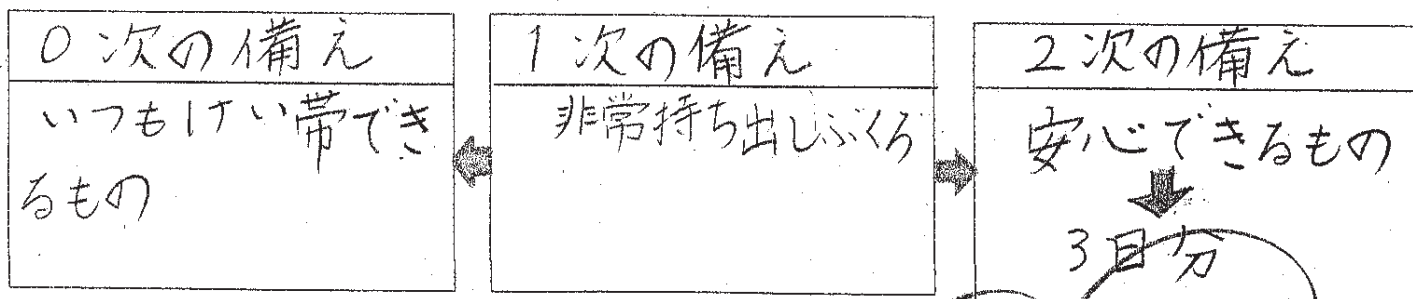 0次の備え
いつもけい帯でき
るもの
1次の備え
非常持ち出しぶくろ
2次の備え
安心できるもの
3日分